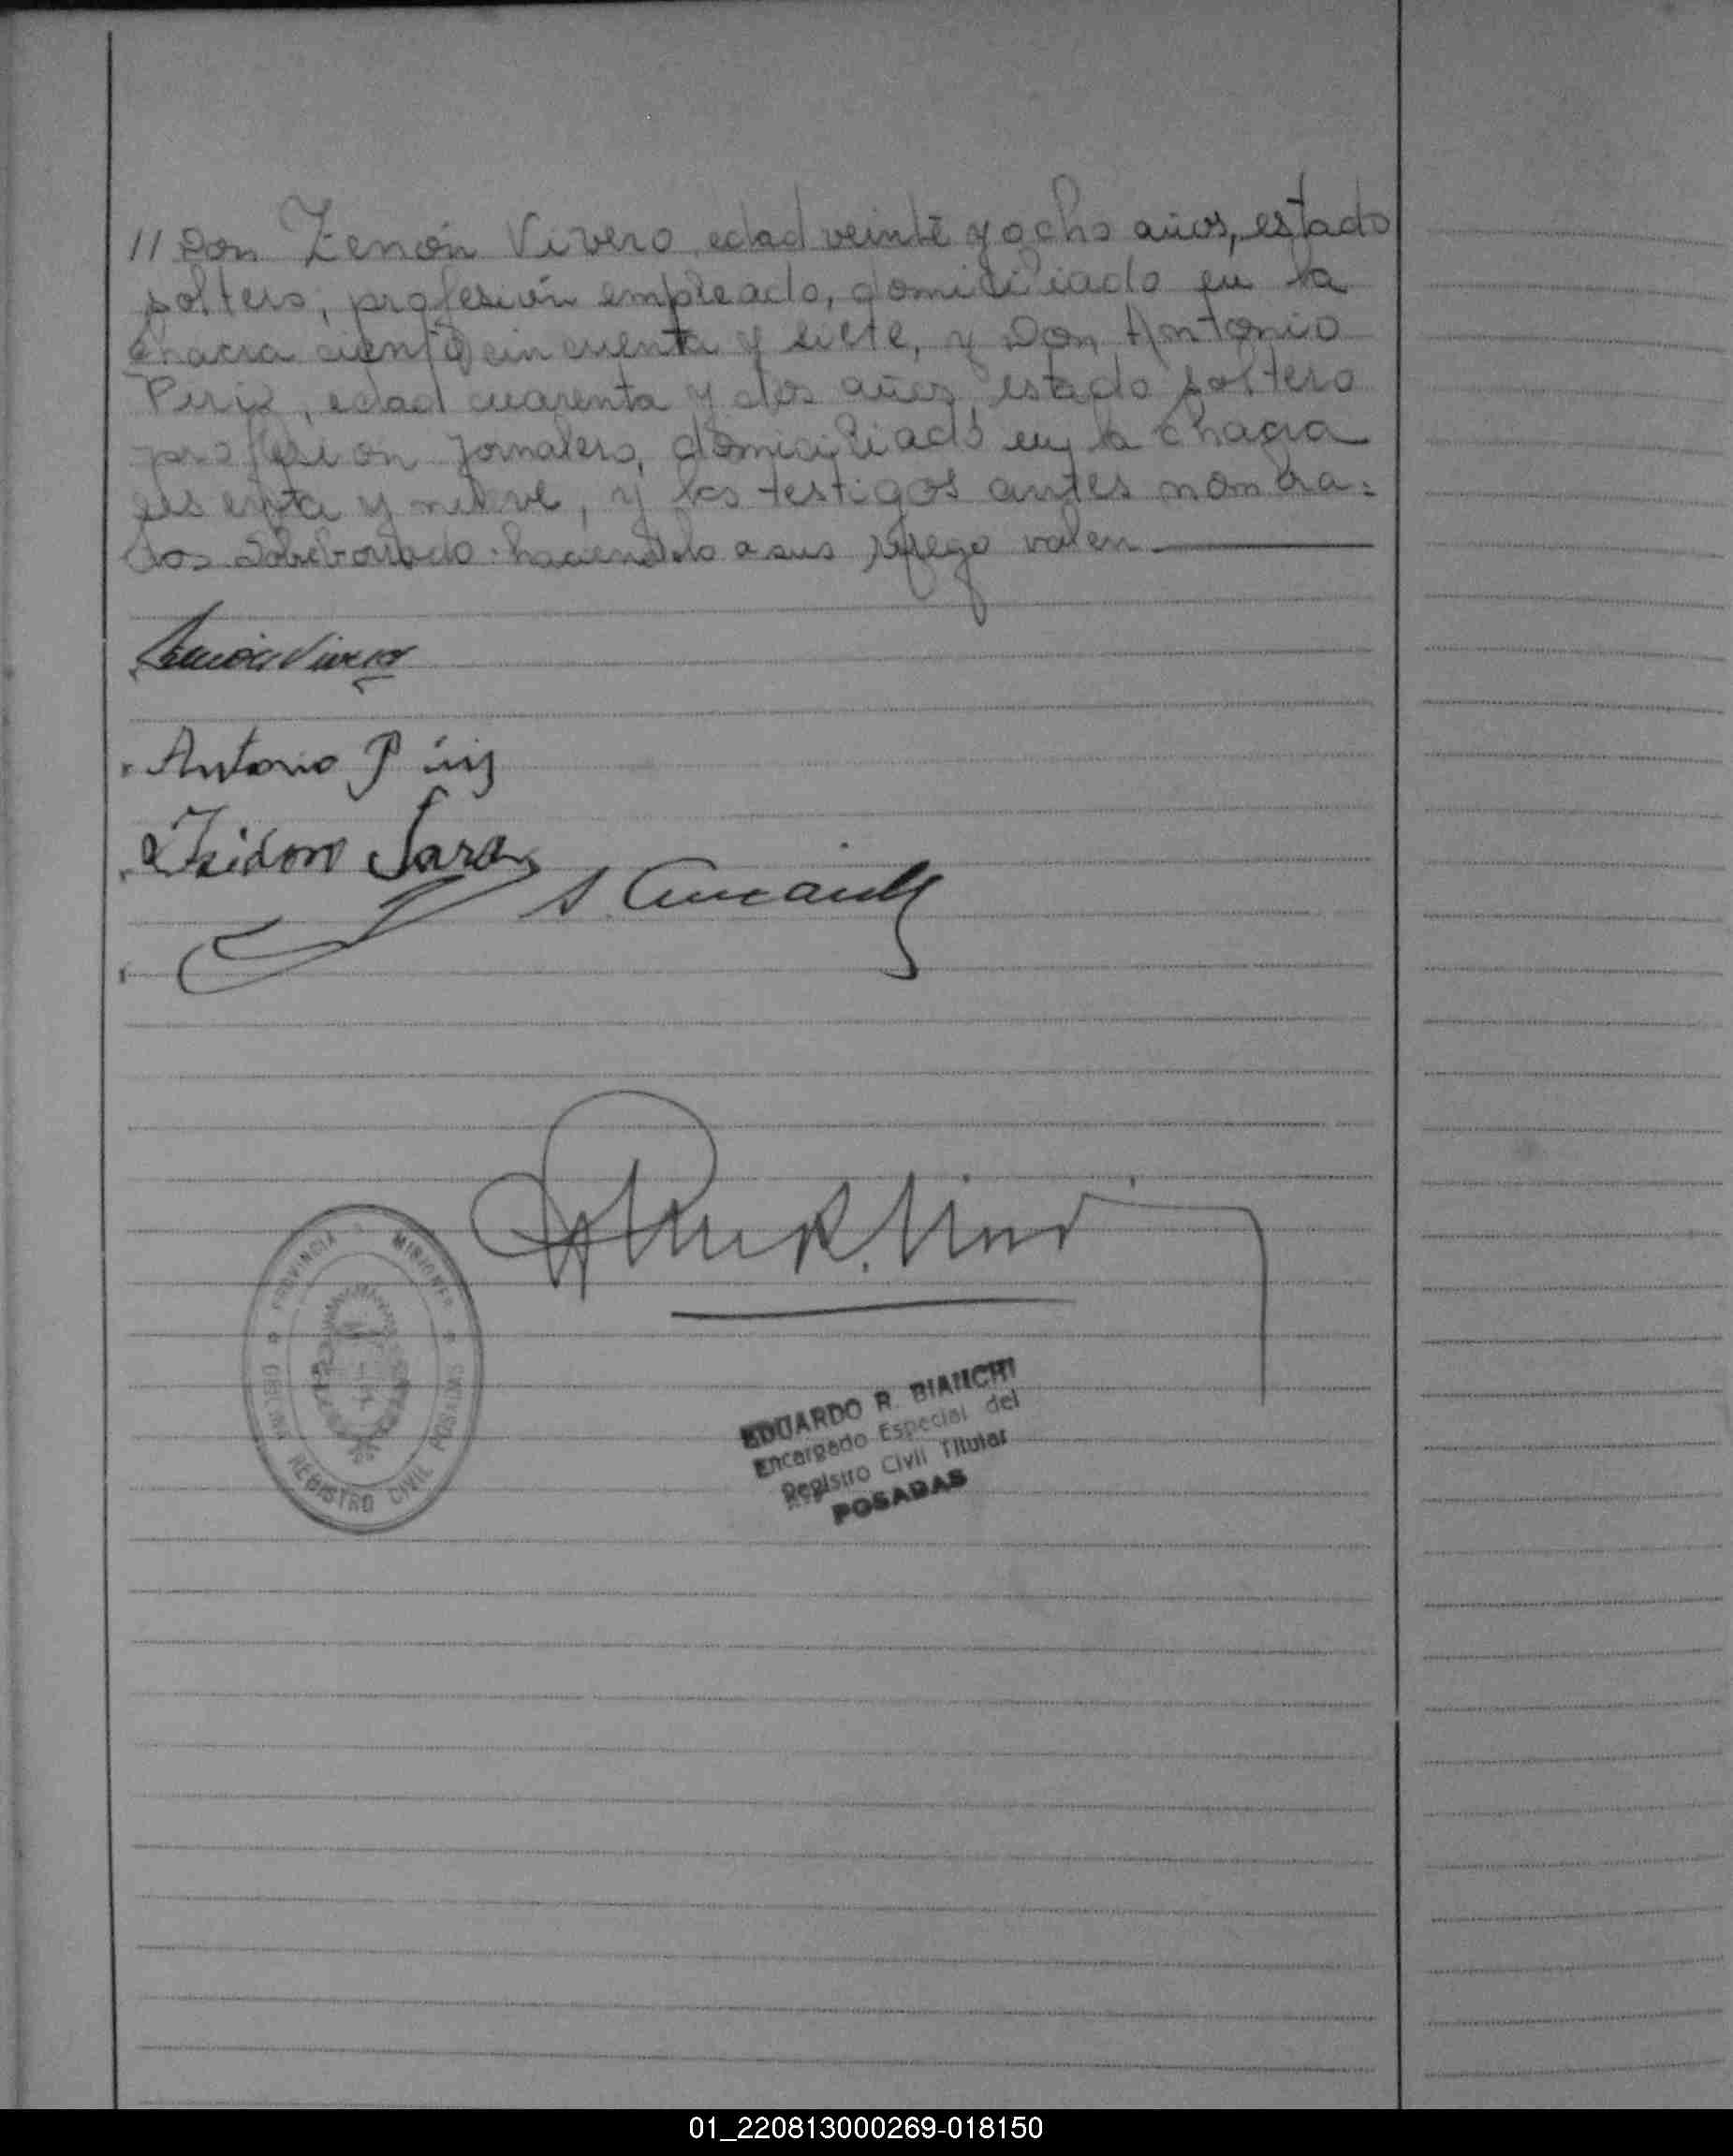 // Don Zenón Vivero, edad veinte y ocho años, estado
soltero, profesión empleado, domiciliado en la
chacra ciento cincuenta y siete, y Don Antonio
Piriz, edad cuarenta y dos años, estado soltero
profesión jornalero, domiciliado en la chacra
sesenta y nueve, y los testigos antes nombra=
dos Sobreborrado: haciendolo a sus ruego valen
Zenón Vivero
Antonio Piriz
Isidoro Jara
S.
PROVINCIA MISIONES
REGISTRO CIVIL POSADAS
EDUARDO R. BIANCHI
Encargado Especial del
Registro Civil Titular
POSADAS
01_220813000269-018150